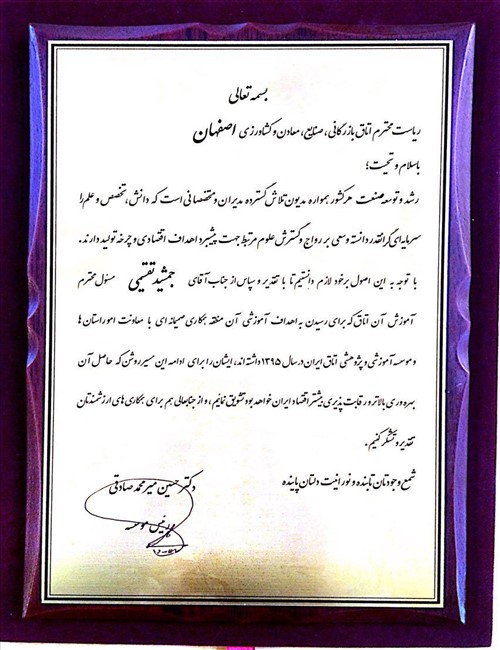 بسمه تعالی
ریاست محترم اتاق بازرگانی، صنایع، معادن و کشاورزی اصفهان
با سلام و تحیت؛
رشد و توسعه صنعت هر کشور همواره مدیون تلاش گسترده مدیران و متخصصانی است که دانش، تخصص و علم را
سرمایه ای گرانقدر دانسته و سعی بر رواج و گسترش علوم مرتبط جهت پیشبرد اهداف اقتصادی و چرخه تولید دارند.
با توجه به این اصول بر خود لازم دانستیم تا با تقدیر و سپاس از جناب آقای جمشید نفیسی مسئول محترم
آموزش آن اتاق که برای رسیدن به اهداف آموزشی آن منطقه همکاری صمیمانه ای با معاونت امور استان ها
و موسسه آموزشی و پژوهشی اتاق ایران در سال ۱۳۹۵ داشته اند، ایشان را برای ادامه این مسیر روشن که حاصل آن
بهره وری بالاتر و رقابت پذیری بیشتر اقتصاد ایران خواهد بود تشویق نمائیم، و از جنابعالی هم برای همکاری های ارزشمندتان
تقدیر و تشکر کنیم.
شمع وجودتان تابنده و نورانیت دلتان پاینده
دکتر حسین میر محمد صادقی
رئیس موسسه